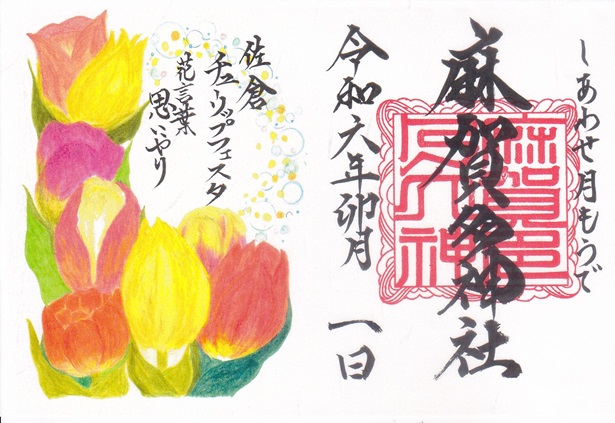 しあわせ月もうで
麻賀多神社
令和六年卯月 一日
佐倉
チューリップフェスタ
花言葉
思いやり